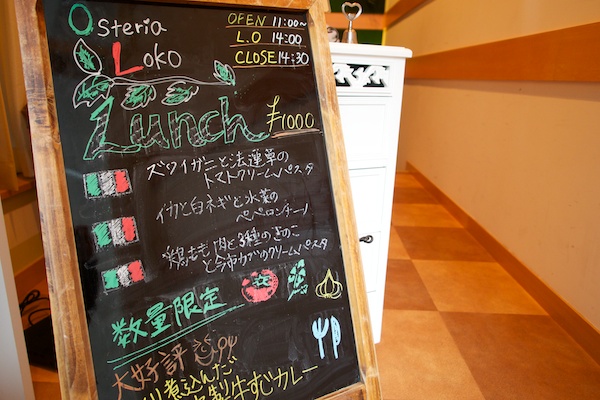 Osteria
Loko
OPEN 11:00~
L.O 14:00
CLOSE 14:30
Lunch ¥1000
ズワイガニと法蓮草の
トマトクリームパスタ
イカと白ネギと水菜の
ペペロンチーノ
鶏もも肉と3種のきのこ
と今市カブのクリームパスタ
数量限定
大好評
煮込んだ
製牛すじカレー